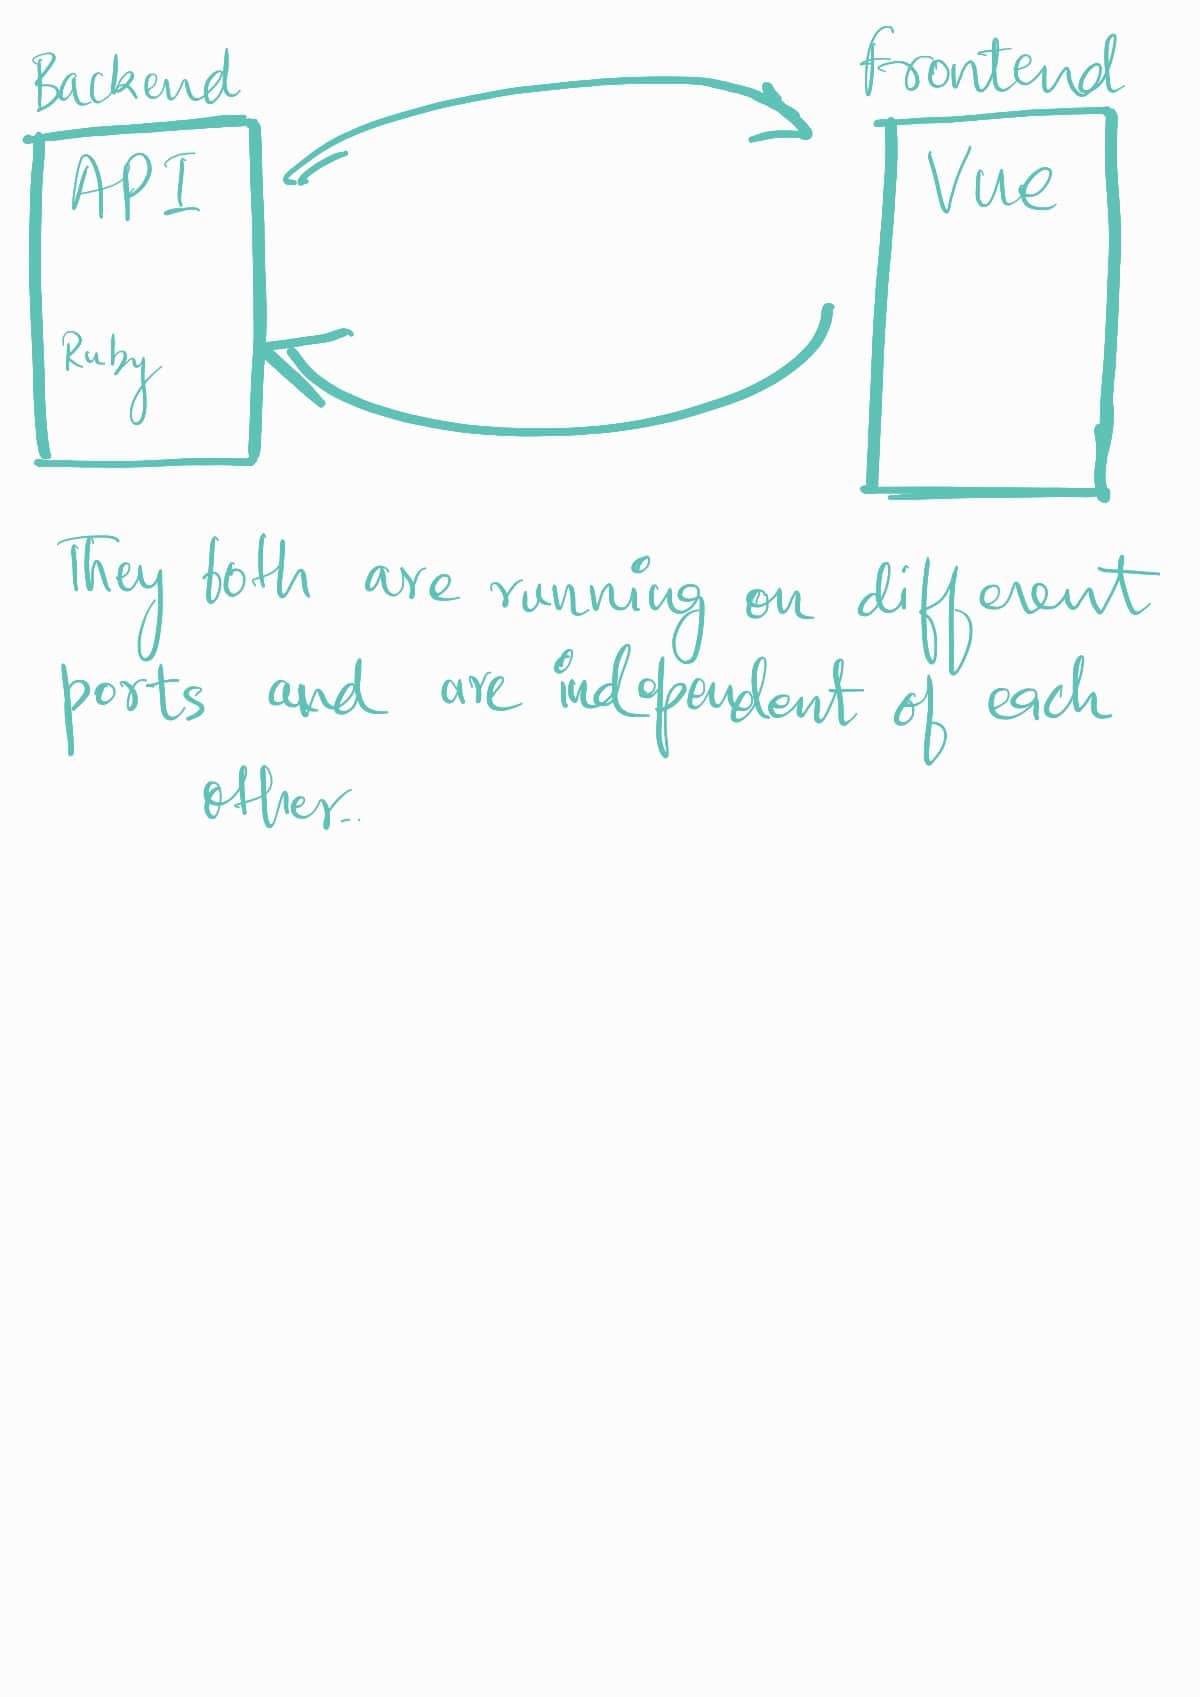 Backend
Frontend
API
Vue
Ruby
They both are running on different
ports and are independent of each
other...